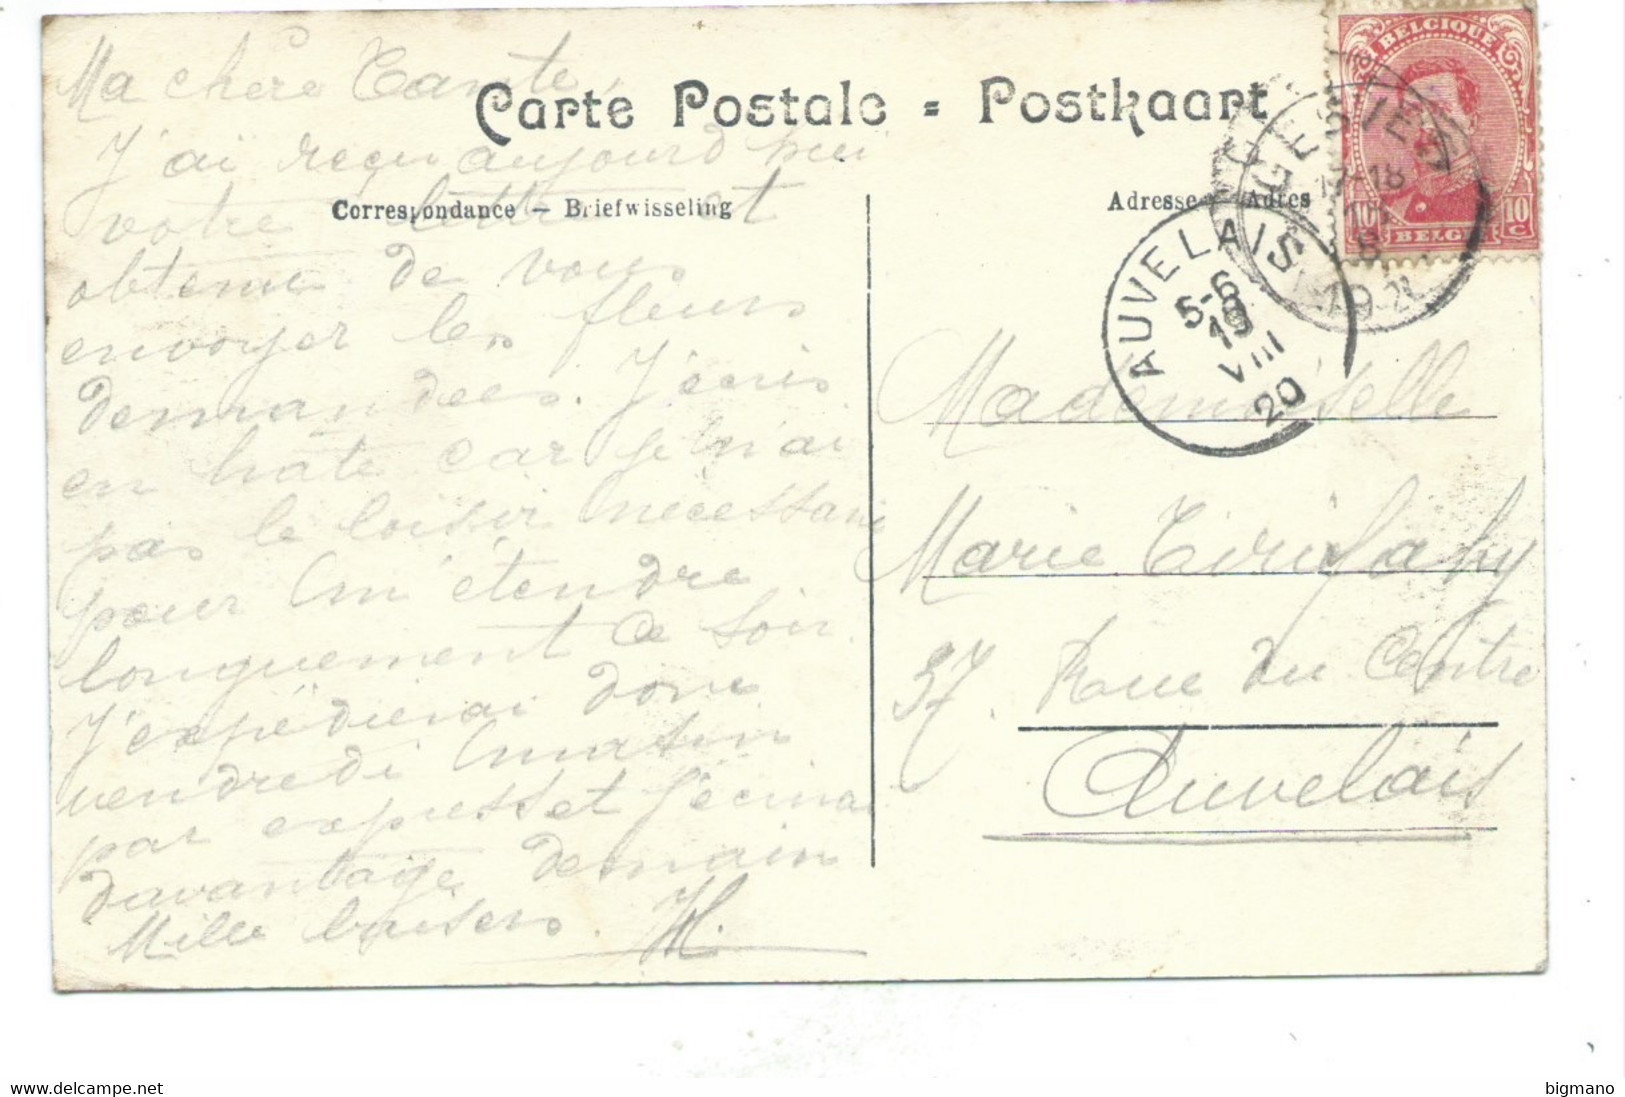 Carte Postale = Postkaart
Correspondance — Briefwisseling
Ma chère Tante,
J'ai reçu aujourd'hui
votre lettre et
obtenu de vous
envoyer les fleurs
demandées. J'écris
en hâte car je n'ai
pas le loisir nécessaire
pour m'étendre
longuement ce soir
J'expédierai donc
vendredi matin
par express et j'écrirai
davantage demain
Mille baisers H.
Adresse — Adres
BELGIQUE
10 c 10 c
BELGIË
AUVELAIS
5-6
19
VIII
20
Mademoiselle
Marie
37. Rue du Centre
Auvelais
www.delcampe.net
bigmano